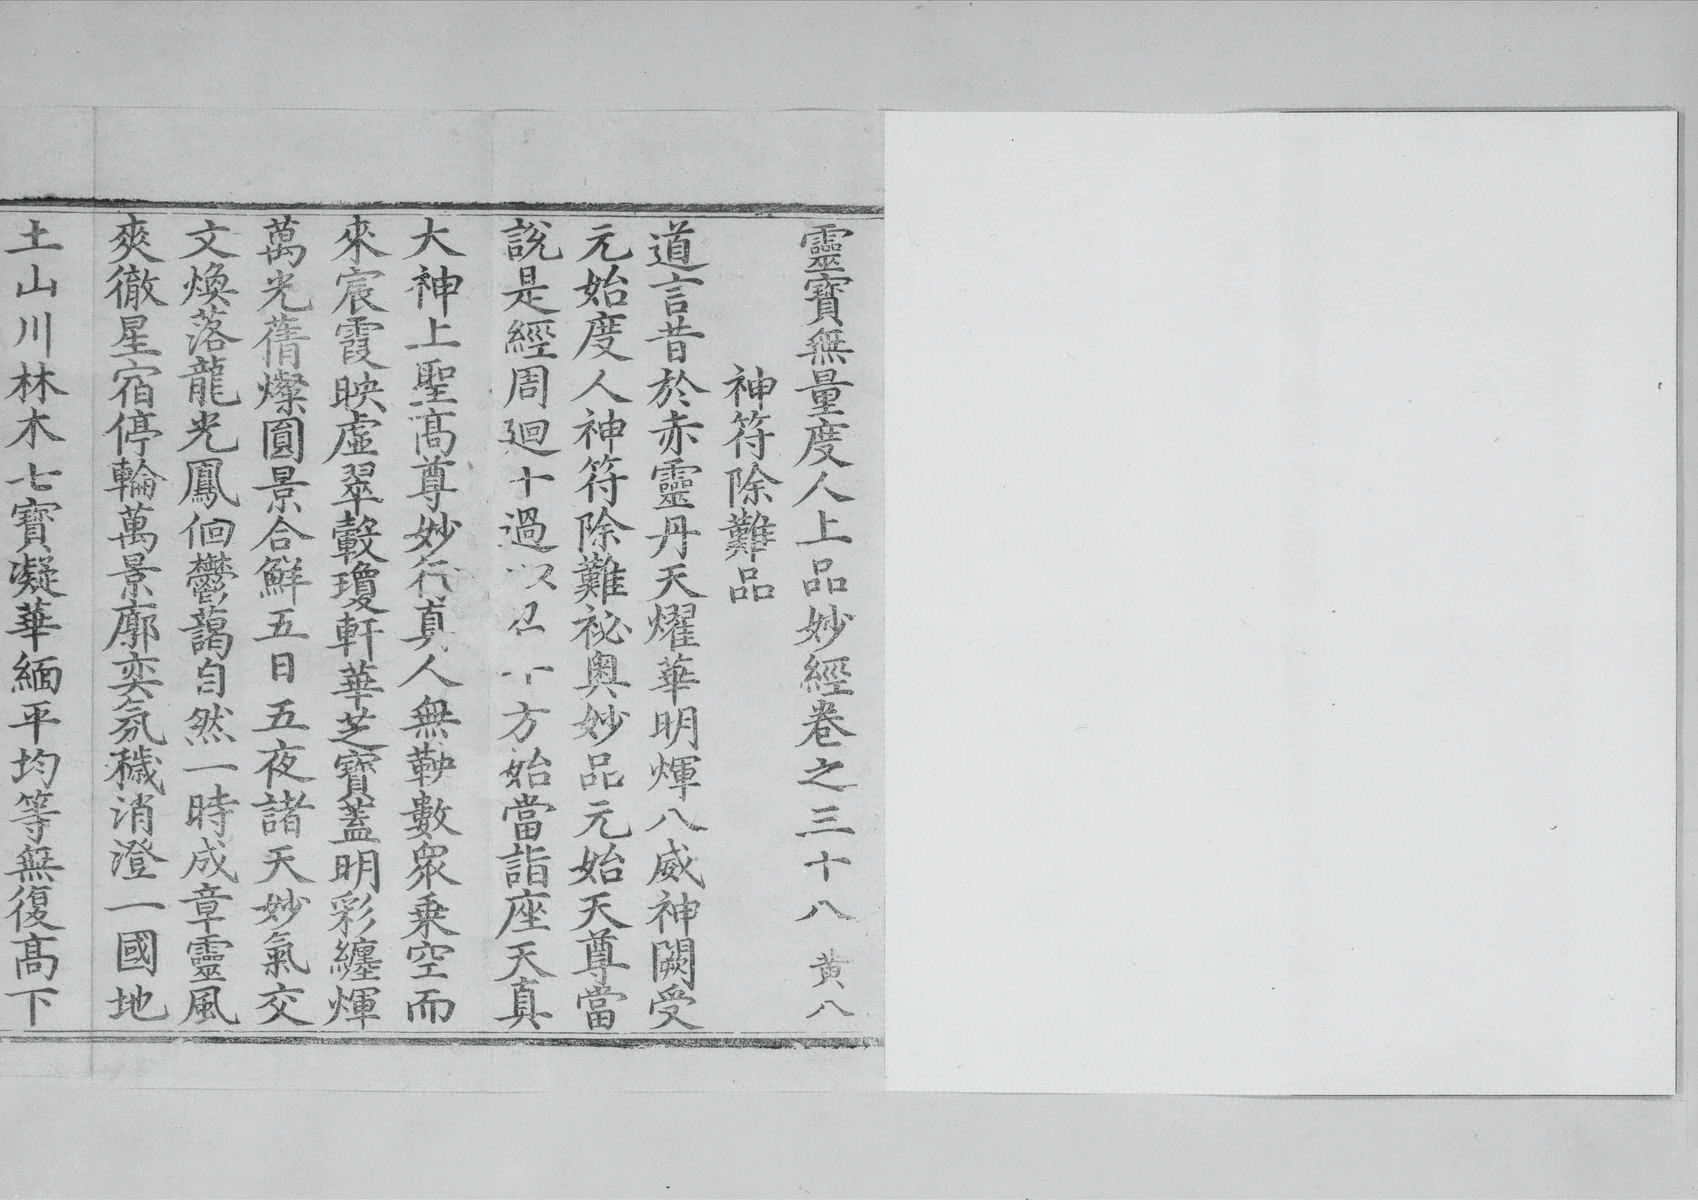 靈寶無量度人上品妙經卷之三十八 黄八
神符除難品
道言昔於赤靈丹天燿華明煇八威神闕受
元始度人神符除難祕奥妙品元始天尊當
說是經周廻十過以召十方始當詣座天真
大神上聖髙尊妙行真人無鞅數衆乗空而
來宸霞映虛翠轂瓊軒華芝寶蓋明彩纏煇
萬光蒨燦圎景合鮮五日五夜諸天妙氣交
文煥落龍光鳳佪鬱藹自然一時成章靈風
爽徹星宿停輪萬景廓奕氛穢消澄一國地
土山川林木七寶凝華緬平均等無復髙下